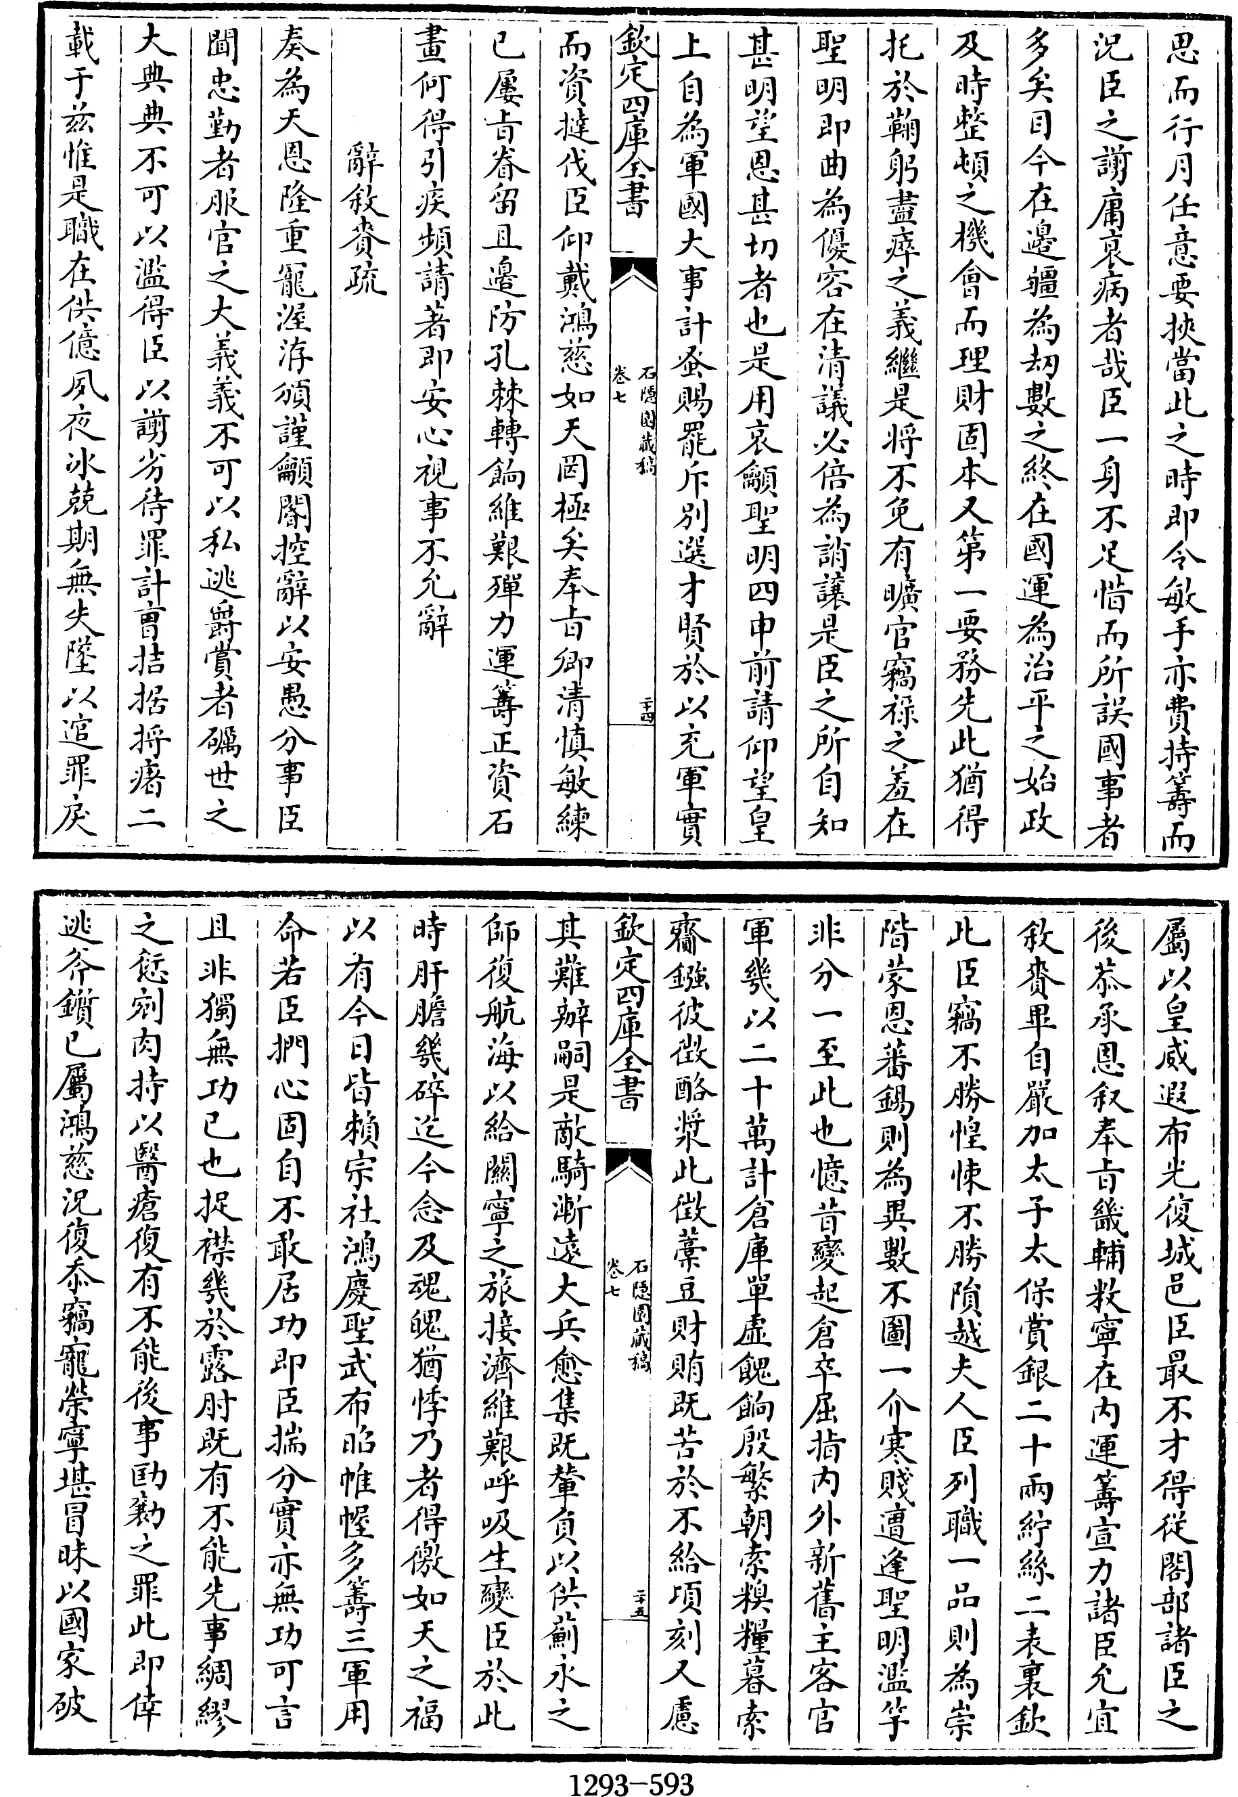 思而行月任意要挾當此之時即令敏手亦費持籌而
況臣之譾庸衰病者哉臣一身不足惜而所誤國事者
多矣目今在邊疆為刼數之終在國運為治平之始政
及時整頓之機會而理財固本又第一要務先此猶得
托於鞠躬盡瘁之義繼是將不免有曠官竊祿之羞在
聖明即曲為優容在清議必倍為誚讓是臣之所自知
甚明望恩甚切者也是用哀籲聖明四申前請仰望皇
上自為軍國大事計蚤賜罷斥別選才賢於以充軍實
欽定四庫全書
石隱園藏稿
卷七
二十四
而資撻伐臣仰戴鴻慈如天罔極矣奉㫖卿清慎敏練
已屢㫖眷留且邊防孔棘轉餉維艱殫力運籌正資石
畫何得引疾頻請著即安心視事不允辭
辭敘賚疏
奏為天恩隆重寵渥洊頒謹籲閽控辭以安愚分事臣
聞忠勤者服官之大義義不可以私逃爵賞者礪世之
大典典不可以濫得臣以譾劣待罪計曹拮据捋瘏二
載于兹惟是職在供億夙夜冰兢期無失墜以逭罪戾
屬以皇威遐布光復城邑臣最不才得從閣部諸臣之
後恭承恩叙奉㫖畿輔敉寧在内運籌宣力諸臣允宜
敘賚畢自嚴加太子太保賞銀二十兩紵絲二表裏欽
此臣竊不勝惶悚不勝隕越夫人臣列職一品則為崇
階蒙恩蕃錫則為異數不圖一介寒賤遭逢聖明濫竽
非分一至此也憶昔變起倉卒屈指内外新舊主客官
軍幾以二十萬計倉庫單虚餽餉殷繁朝索糗糧暮索
齋鏹彼徴酪漿此徴藁豆財賄既苦於不給項刻又慮
欽定四庫全書
石隱園藏稿
卷七
二十五
其難辦嗣是敵騎漸遠大兵愈集既輦負以供薊永之
師復航海以給關寧之旅接濟維艱呼吸生變臣於此
時肝膽幾碎迄今念及魂魄猶悸乃者得徼如天之福
以有今日皆賴宗社鴻慶聖武布昭帷幄多籌三軍用
命若臣捫心固自不敢居功即臣揣分實亦無功可言
且非獨無功已也捉襟幾於露肘既有不能先事綢繆
之愆剜肉持以醫瘡復有不能後事劻勷之罪此即倖
逃斧鑕已屬鴻慈況復忝竊寵榮寧堪冒昧以國家破
1293-593